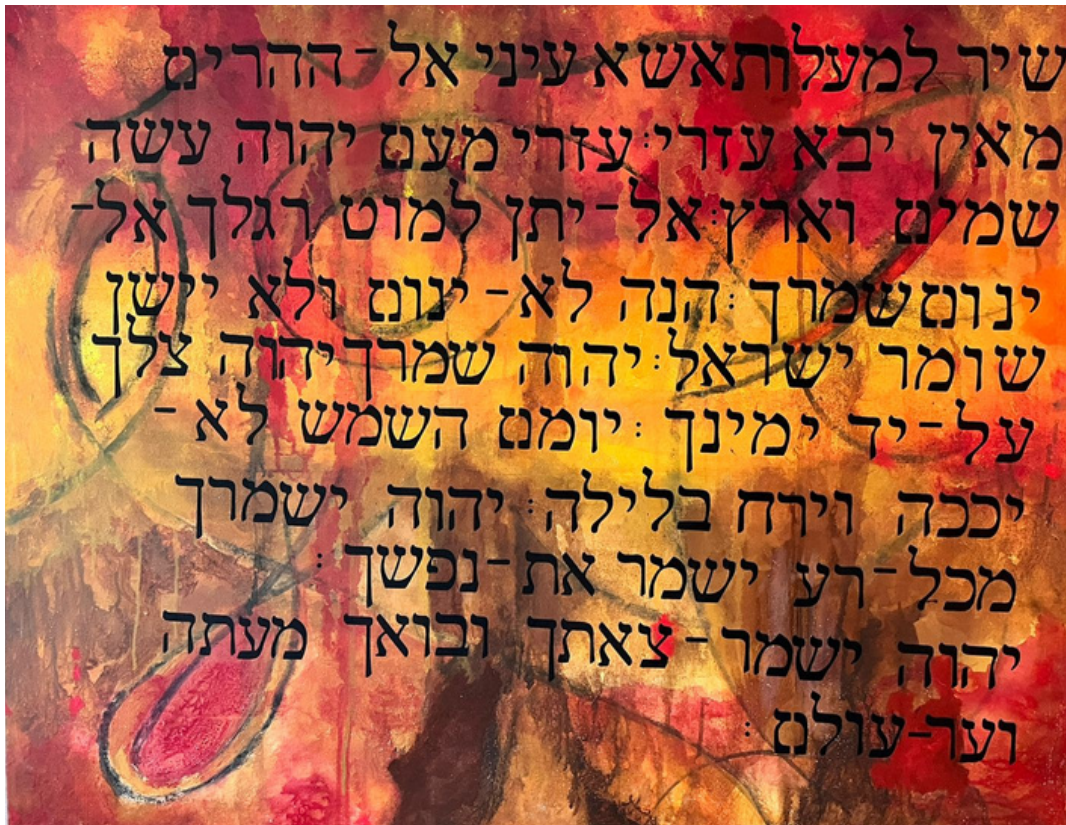 שיר למעלותאשא עיני אל-ההרים
מאין יבא עזרי: עזרי מעם יהוה עשה
שמים וארץ: אל-יתן למוט רגלך אל-
ינוםשמרך: הנה לא-ינום ולא יישן
שומר ישראל: יהוה שמרך יהוה צלך
על-יד ימינך: יומם השמש לא-
יככה וירח בלילה: יהוה ישמרך
מכל-רע ישמר את-נפשך:
יהוה ישמר-צאתך ובואך מעתה
ועד-עולם: